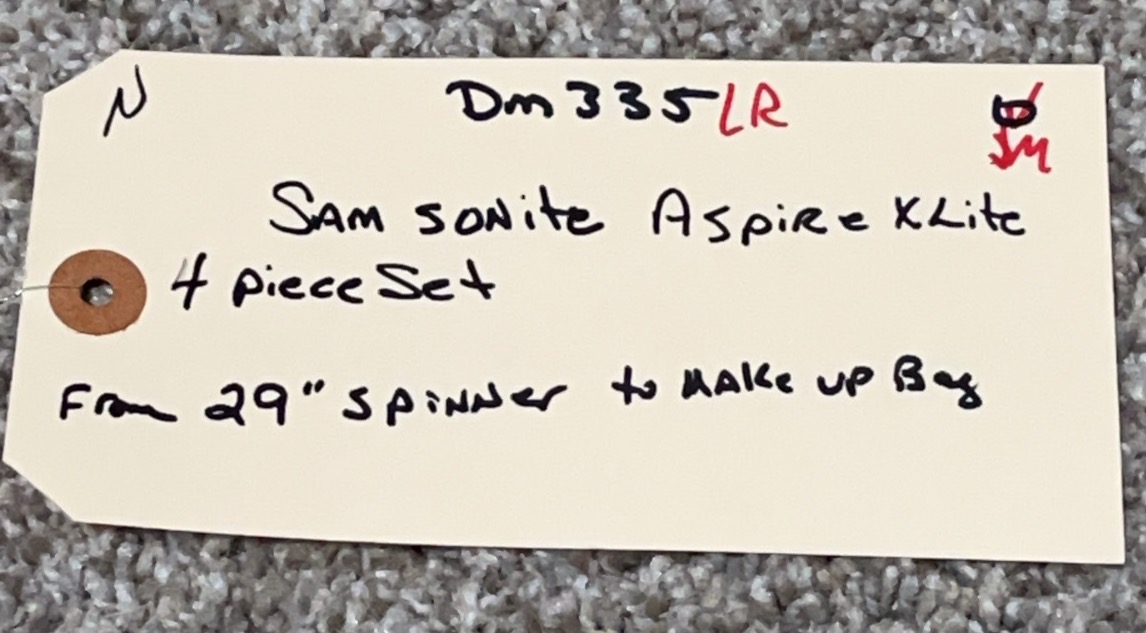 N Dm335 LR
JM
SAMSONite Aspire XLite
4 piece Set
From 29" Spinner to MAKe up Bag